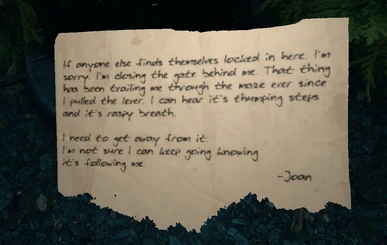 If anyone else finds themselves locked in here. I'm
sorry. I'm closing the gate behind me. That thing
has been trailing me through the maze ever since
I pulled the lever. I can hear it's thumping steps
and it's raspy breath.
I need to get away from it.
I'm not sure I can keep going knowing
it's following me.
-Joan